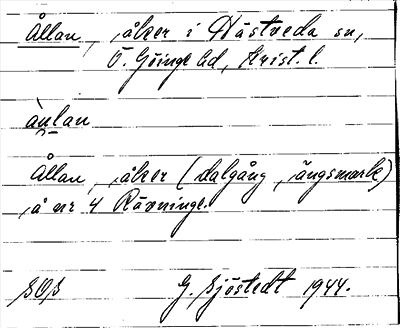 Ållan, åker i Hästveda sn,
Ö. Göinge hd, Krist. l.
ànlan
Ållan, åker (dalgång, ängsmark)
å nr 4 Rävninge.
SOS G. Sjöstedt 1944.